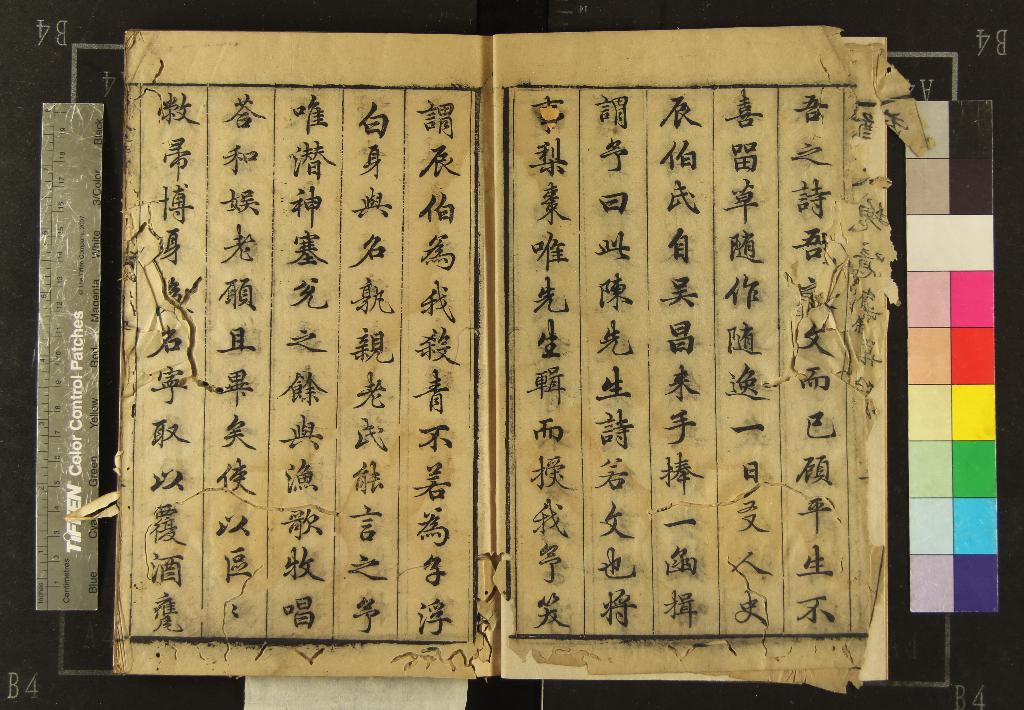 吾之詩吾文而已顧平生不
喜留草随作随逸一日友人史
辰伯氏自吴昌来手捧一函揖
謂予曰此陳先生詩若文也将
梨棗唯先生輯而授我予笑
謂辰伯為我殺青不若為予浮
白身與名孰親老氏能言之予
唯潜神塞兊之餘與漁歌牧唱
荅和娱老願且畢矣使以區〻
敝帚博身名寜取以覆酒甕
TIFFEN Color Control Patches
© The Tiffen Company, 2007
Blue
Cyan
Green
Yellow
Red
Magenta
White
3/Color
Black
Inches
Centimetres
B4
B4
B4
B4